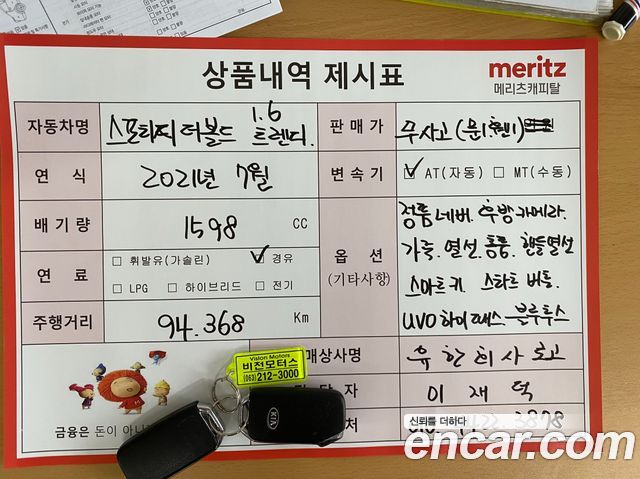 상품내역 제시표
meritz
메리츠캐피탈
자동차명 스포티지더볼드 1.6 트렌디. 판매가 무사고
연식 2021년 7월 변속기 ☑ AT(자동) □ MT(수동)
배기량 1598 CC
옵션
(기타사항)
정품네비. 후방카메라.
가죽. 열선. 통풍. 핸들열선
스마트키. 스타트버튼.
UVO 하이패스. 블루투스
연료 □ 휘발유(가솔린) ☑ 경유
□ LPG □ 하이브리드 □ 전기
주행거리 94.368 Km
매상사명 유한회사
자 이재덕
처 3878
금융은 돈이 아니
Vision Motors
비전모터스
(063)212-3000
KIA
신뢰를 더하다
encar.com